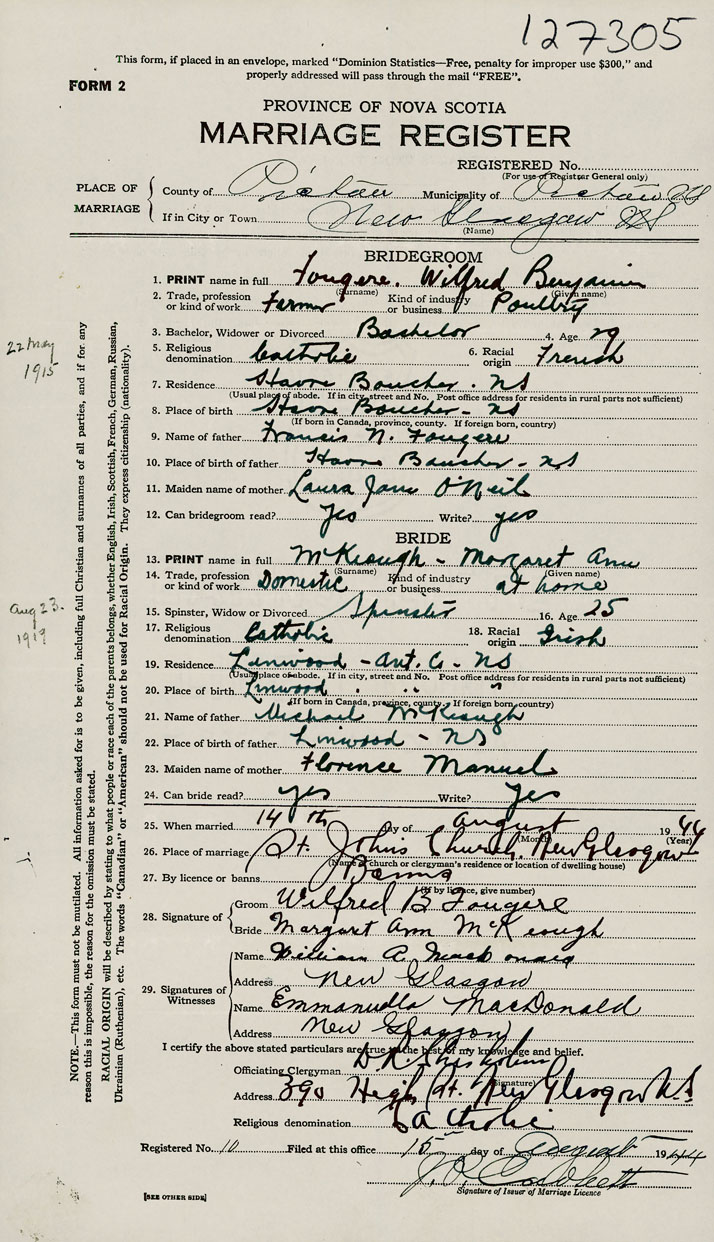 127305
This form, if placed in an envelope, marked “Dominion Statistics—Free, penalty for improper use $300,” and
properly addressed will pass through the mail “FREE”.
FORM 2
PROVINCE OF NOVA SCOTIA
MARRIAGE REGISTER
REGISTERED No.
(For use of Registrar General only)
PLACE OF MARRIAGE
County of Pictou Municipality of Pictou NS
If in City or Town New Glasgow NS
(Name)
BRIDEGROOM
1. PRINT name in full Fougere. Wilfred Benjamin
(Surname) (Given name)
2. Trade, profession or kind of work Farmer Kind of industry or business Poultry
3. Bachelor, Widower or Divorced Bachelor 4. Age 29
22 May 1915
5. Religious denomination Catholic 6. Racial origin French
7. Residence Havre Boucher - NS
(Usual place of abode. If in city, street and No. Post office address for residents in rural parts not sufficient)
8. Place of birth Havre Boucher - NS
(If born in Canada, province, county. If foreign born, country)
9. Name of father Francis N. Fougere
10. Place of birth of father Havre Boucher - NS
11. Maiden name of mother Laura Jane O'Neil
12. Can bridegroom read? Yes Write? yes
BRIDE
13. PRINT name in full McKeough - Margaret Ann
(Surname) (Given name)
14. Trade, profession or kind of work Domestic Kind of industry or business at home
15. Spinster, Widow or Divorced Spinster 16. Age 25
Aug 23. 1919
17. Religious denomination Catholic 18. Racial origin Irish
19. Residence Linwood - Ant. Co - NS
(Usual place of abode. If in city, street and No. Post office address for residents in rural parts not sufficient)
20. Place of birth Linwood " "
(If born in Canada, province, county. If foreign born, country)
21. Name of father Michael McKeough
22. Place of birth of father Linwood - NS
23. Maiden name of mother Florence Manuel
24. Can bride read? yes Write? Yes
25. When married 14th day of August 1944
(Month) (Year)
26. Place of marriage St. Johns Church, New Glasgow
(Name of church or clergyman's residence or location of dwelling house)
27. By licence or banns Banns
(If by licence, give number)
28. Signature of
Groom Wilfred B Fougere
Bride Margaret Ann McKeough
29. Signatures of Witnesses
Name William A. MacDonald
Address New Glasgow
Name Emmanuella MacDonald
Address New Glasgow
I certify the above stated particulars are true to the best of my knowledge and belief.
Officiating Clergyman
(Signature)
Address 390 High St. New Glasgow N.S.
Religious denomination Catholic
Registered No. 10 Filed at this office 15 day of August 1944
Signature of Issuer of Marriage Licence
[SEE OTHER SIDE]
NOTE.—This form must not be mutilated. All information asked for is to be given, including full Christian and surnames of all parties, and if for any
reason this is impossible, the reason for the omission must be stated.
RACIAL ORIGIN will be described by stating to what people or race each of the parents belongs, whether English, Irish, Scottish, French, German, Russian,
Ukrainian (Ruthenian), etc. The words “Canadian” or “American” should not be used for Racial Origin. They express citizenship (nationality).